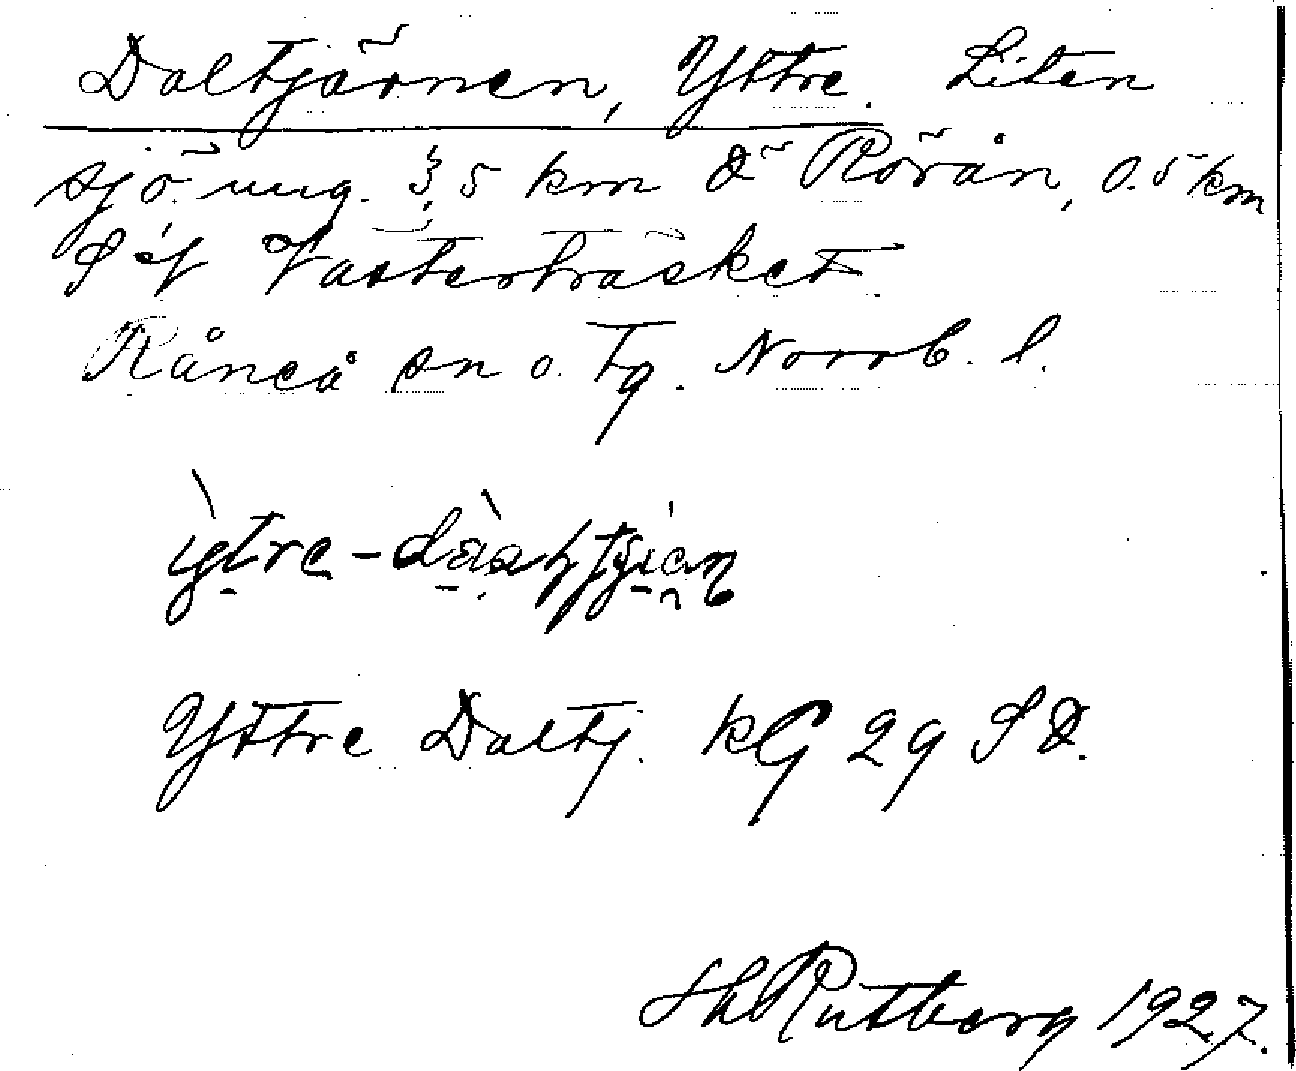 Daltjärnen, Yttre. Liten
sjö ung. 3,5 km Ö Rörån, 0.5 km
S Västerträsket
Råneå sn o. tg. Norrb. l.
Yttre Daltj. kG 29 SÖ.
Hh Rutberg 1927.